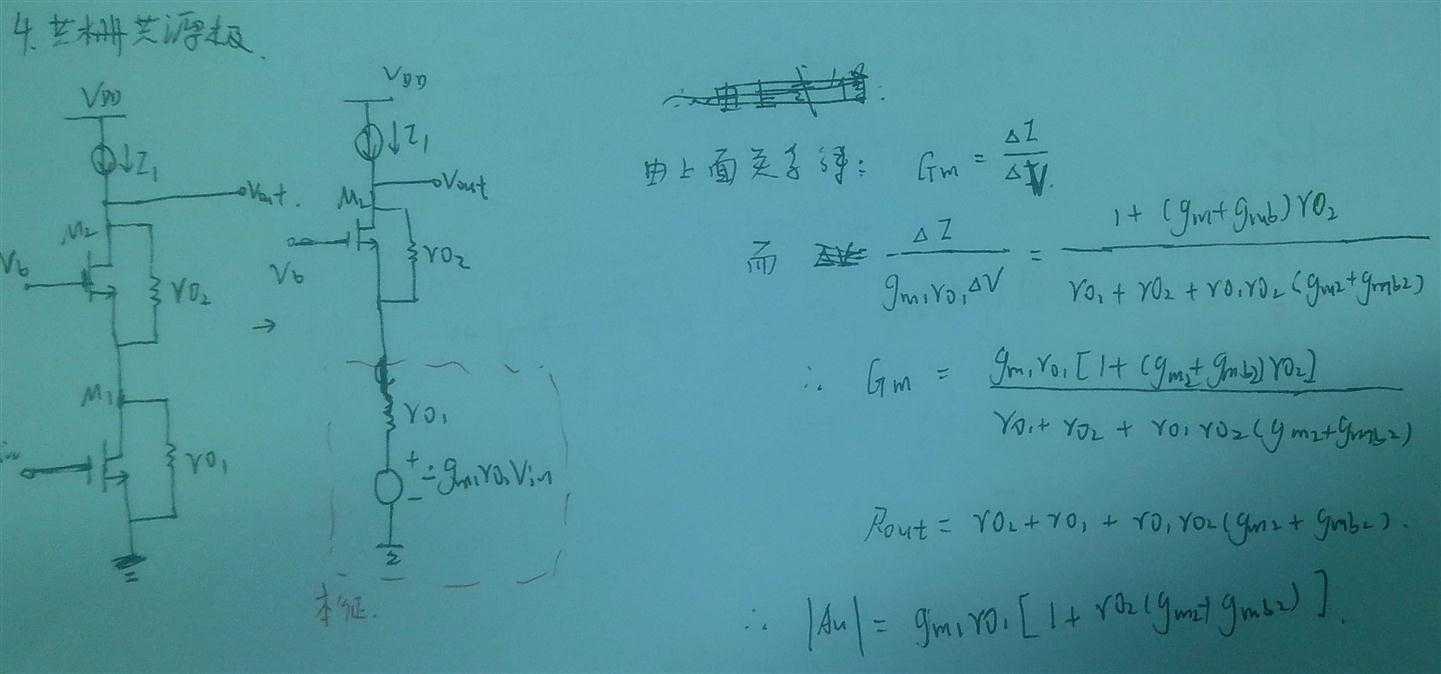 4. 共栅共源极.
VDD
↓I1
Vout.
M2
Vb
rO2
→
M1
in
rO1
VDD
↓I1
Vout
M2
Vb
rO2
rO1
+
-
= gm1rO1Vin
本征.
由上面关系得: Gm = ΔI/ΔV.
而 ΔI/(gm1rO1ΔV) = (1 + (gm+gmb)rO2)/(rO1 + rO2 + rO1rO2(gm2+gmb2))
∴ Gm = gm1rO1[1 + (gm2+gmb2)rO2]/(rO1 + rO2 + rO1rO2(gm2+gmb2))
Rout = rO2 + rO1 + rO1rO2(gm2 + gmb2).
∴ |Au| = gm1rO1[1 + rO2(gm2+gmb2)].